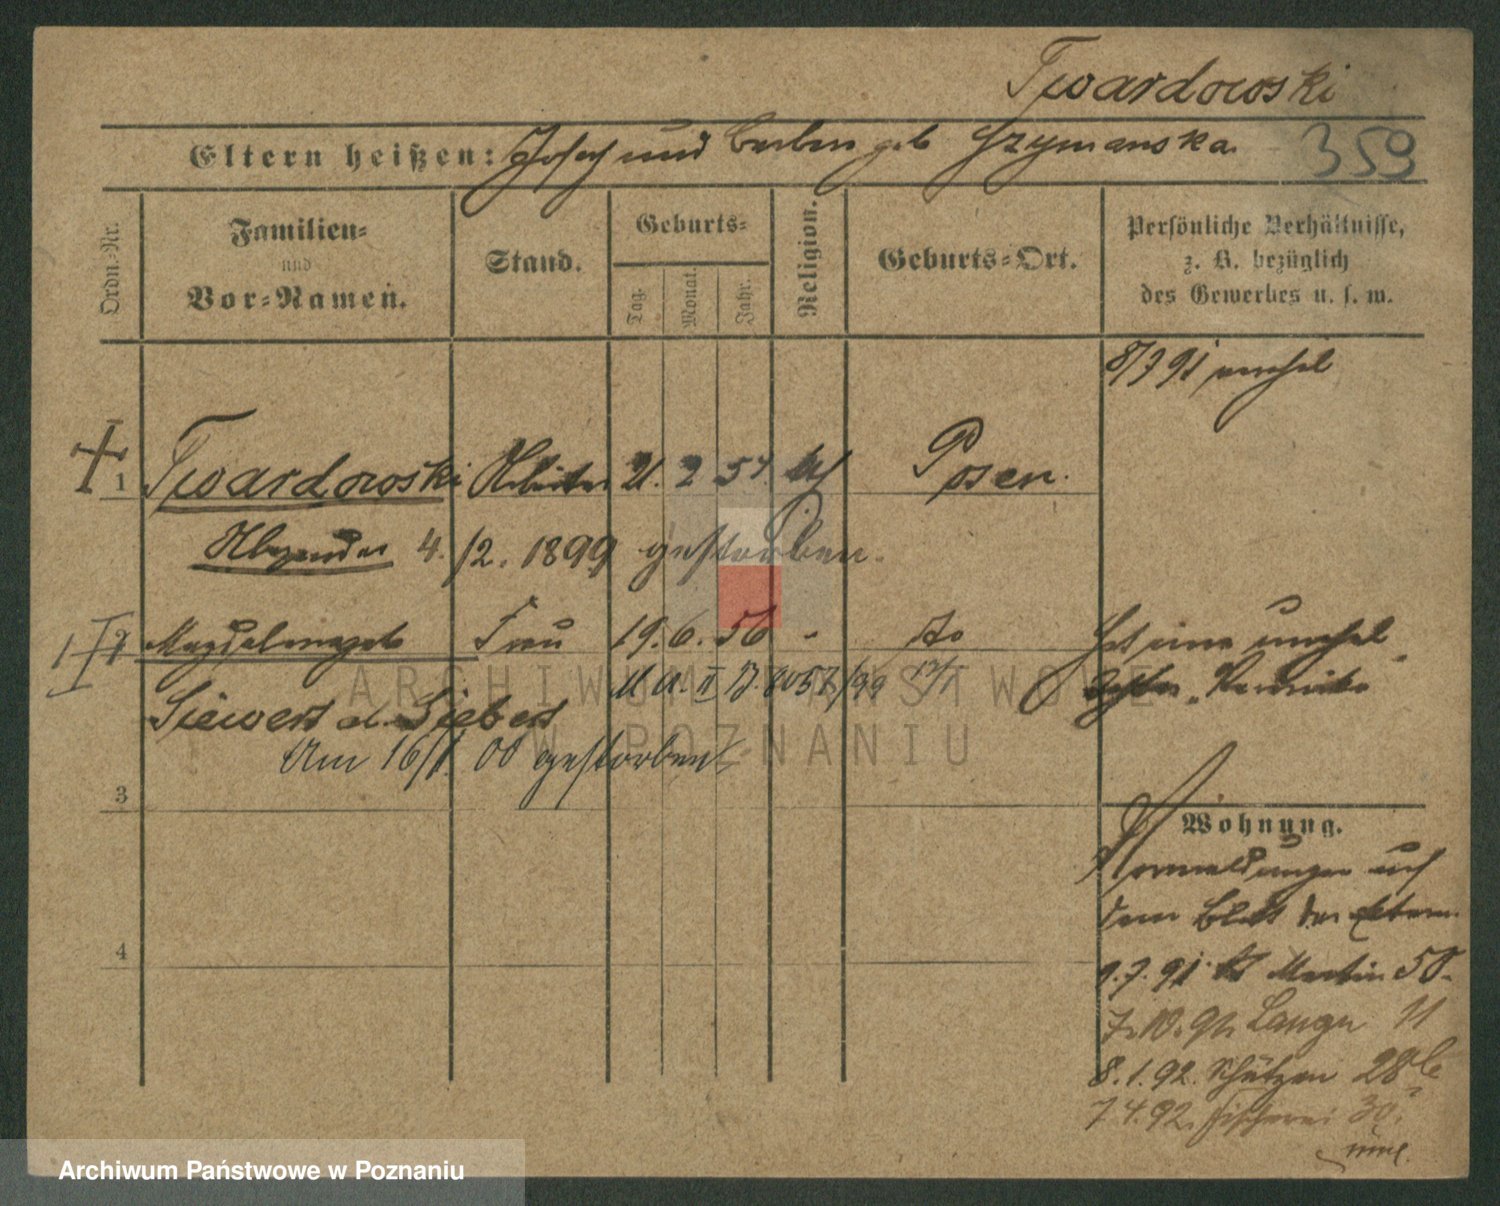 Twardowski
Eltern heißen: Josef und Barbara geb Szymanska
359
Ordn.-Nr.
Familien-
und
Vor-Namen.
Stand.
Geburts-
Tag.
Monat.
Jahr.
Religion.
Geburts-Ort.
Persönliche Verhältnisse,
z. B. bezüglich
des Gewerbes u. s. w.
8/7 91
1 Twardowski Arbeiter 21. 2 57. Posen.
Alexander 4./2. 1899 gestorben.
2 Magdalena geb Frau 19. 6. 56 -
Siewert Siebert
Am 16/1. 00 gestorben
Hat eine
3
Wohnung.
Vormeldungen auf
dem Blatt der Eltern.
9.7.91 St Martin 50.
7.10.91. Lange 11
4
8.1.92. Schützen 28b
7 4.92. Fischerei 30.
ARCHIWUM PAŃSTWOWE
W POZNANIU
Archiwum Państwowe w Poznaniu